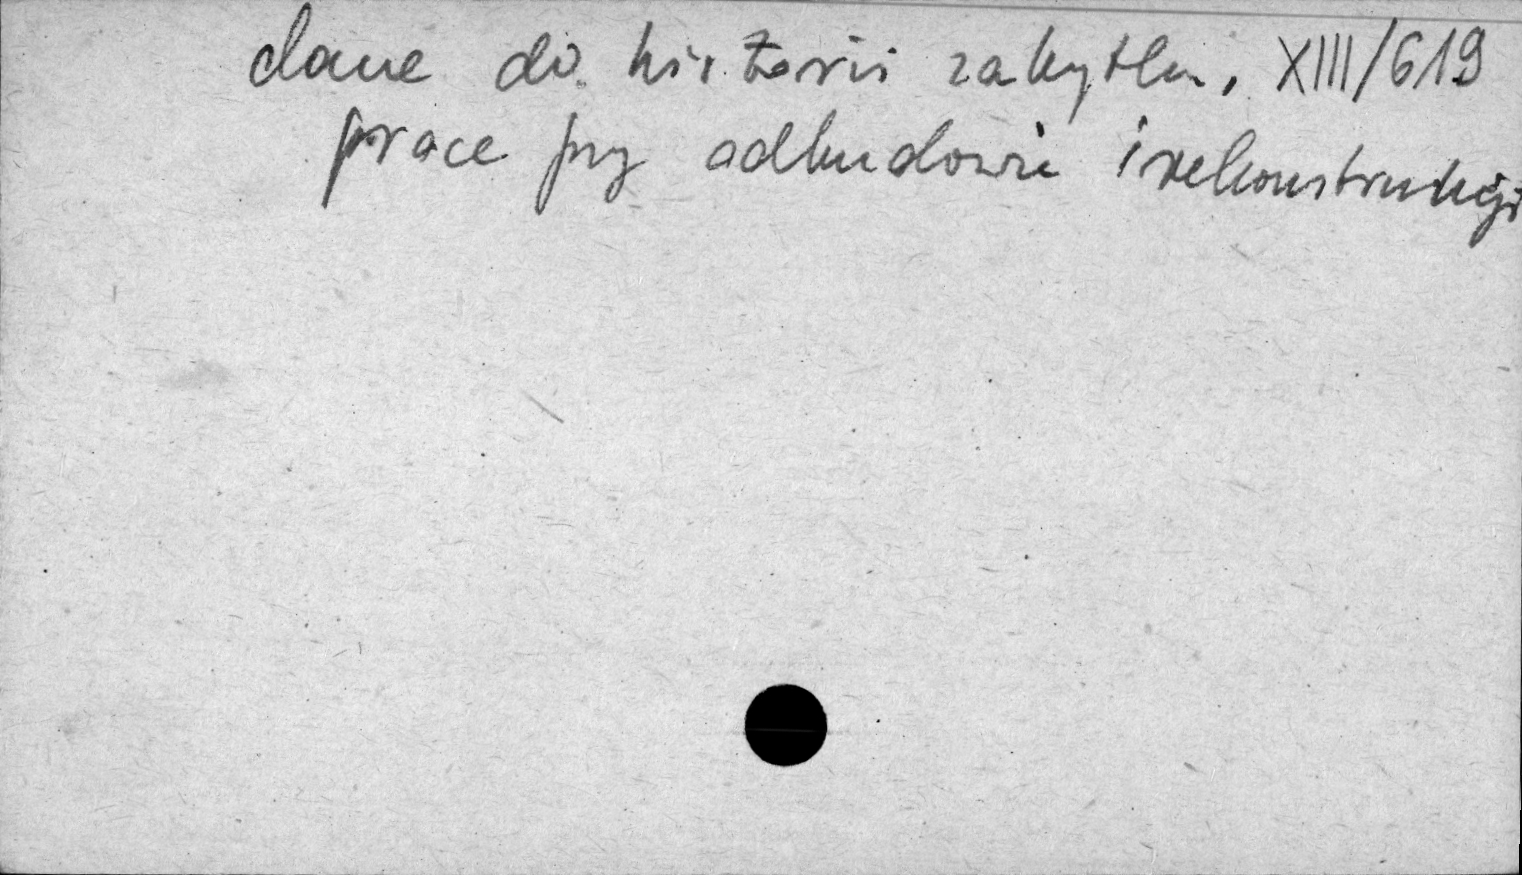 dane do historii zabytku, XIII/619
prace przy odbudowie i rekonstrukcji